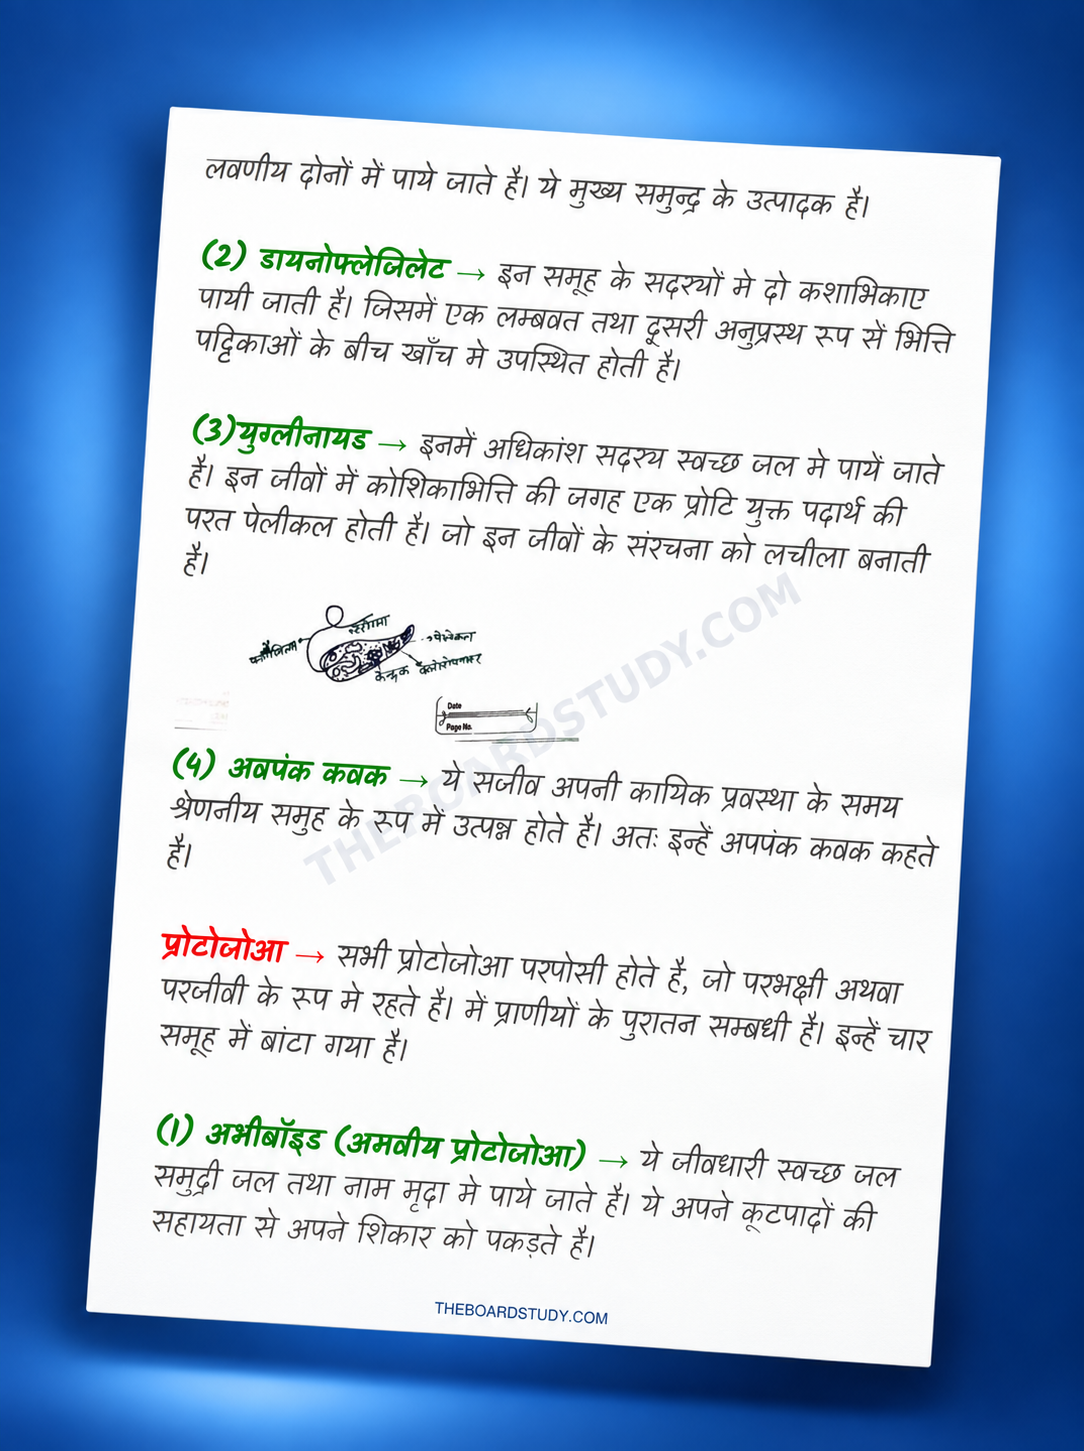 लवणीय दोनों में पाये जाते है। ये मुख्य समुन्द्र के उत्पादक है।
(2) डायनोफ्लेजिलेट → इन समूह के सदस्यों मे दो कशाभिकाए
पायी जाती है। जिसमें एक लम्बवत तथा दूसरी अनुप्रस्थ रूप सें भित्ति
पट्टिकाओं के बीच खाँच मे उपस्थित होती है।
(3)युग्लीनायड → इनमें अधिकांश सदस्य स्वच्छ जल मे पायें जाते
है। इन जीवों में कोशिकाभित्ति की जगह एक प्रोटि युक्त पदार्थ की
परत पेलीकल होती है। जो इन जीवों के संरचना को लचीला बनाती
है।
केन्द्रक
Date
Page No.
THEBOARDSTUDY.COM
(4) अवपंक कवक → ये सजीव अपनी कायिक प्रवस्था के समय
श्रेणनीय समुह के रूप में उत्पन्न होते है। अतः इन्हें अपपंक कवक कहते
है।
प्रोटोजोआ → सभी प्रोटोजोआ परपोसी होते है, जो परभक्षी अथवा
परजीवी के रूप मे रहते है। में प्राणीयों के पुरातन सम्बधी है। इन्हें चार
समूह में बांटा गया है।
(1) अभीबॉइड (अमवीय प्रोटोजोआ) → ये जीवधारी स्वच्छ जल
समुद्री जल तथा नाम मृदा मे पाये जाते है। ये अपने कूटपादों की
सहायता से अपने शिकार को पकड़ते है।
THEBOARDSTUDY.COM